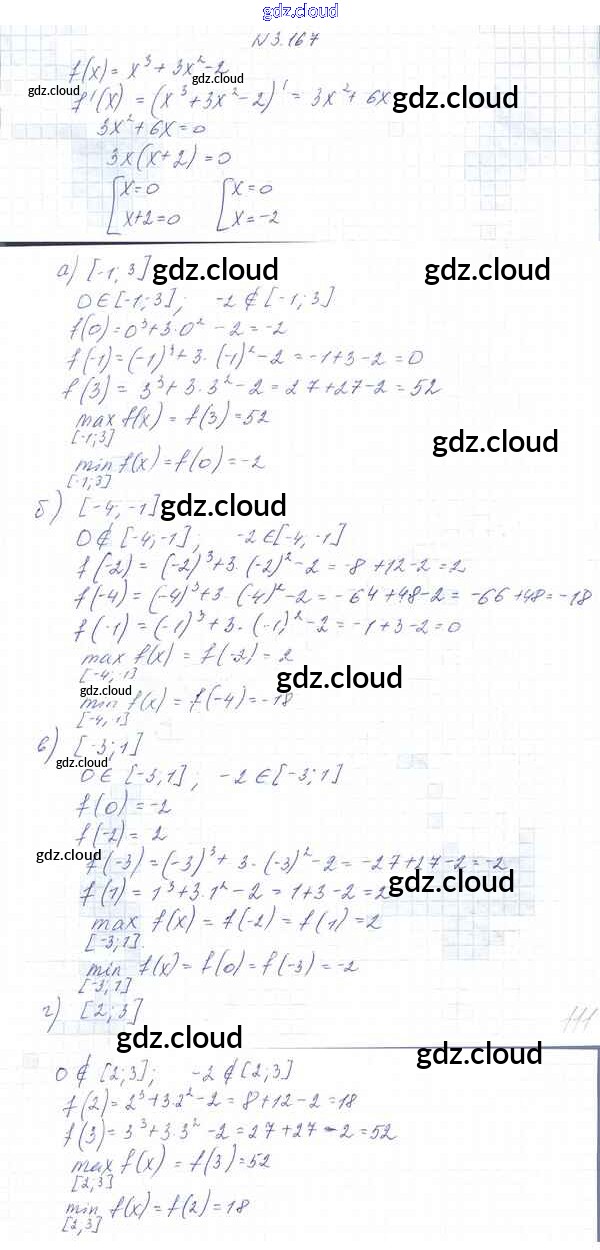 gdz.cloud
N 3.167
f(x) = x³ + 3x² - 2
gdz.cloud
gdz.cloud
f'(x) = (x³ + 3x² - 2)' = 3x² + 6x
gdz.cloud
3x² + 6x = 0
3x(x+2) = 0
[x=0 [x=0
[x+2=0 [x=-2
а) [-1; 3]
gdz.cloud gdz.cloud
0 ∈ [-1; 3]; -2 ∉ [-1; 3]
f(0) = 0³ + 3·0² - 2 = -2
f(-1) = (-1)³ + 3·(-1)² - 2 = -1 + 3 - 2 = 0
f(3) = 3³ + 3·3² - 2 = 27 + 27 - 2 = 52
max f(x) = f(3) = 52
[-1;3]
gdz.cloud
min f(x) = f(0) = -2
[-1;3]
б) [-4; -1]
gdz.cloud
0 ∉ [-4; -1]; -2 ∈ [-4; -1]
f(-2) = (-2)³ + 3·(-2)² - 2 = -8 + 12 - 2 = 2
f(-4) = (-4)³ + 3·(-4)² - 2 = -64 + 48 - 2 = -66 + 48 = -18
f(-1) = (-1)³ + 3·(-1)² - 2 = -1 + 3 - 2 = 0
max f(x) = f(-2) = 2
[-4; -1]
gdz.cloud
gdz.cloud
min f(x) = f(-4) = -18
[-4; -1]
в) [-3; 1]
gdz.cloud
0 ∈ [-3; 1]; -2 ∈ [-3; 1]
f(0) = -2
f(-2) = 2
gdz.cloud
f(-3) = (-3)³ + 3·(-3)² - 2 = -27 + 27 - 2 = -2
gdz.cloud
f(1) = 1³ + 3·1² - 2 = 1 + 3 - 2 = 2
max f(x) = f(-2) = f(1) = 2
[-3; 1]
min f(x) = f(0) = f(-3) = -2
[-3; 1]
г) [2; 3]
111
gdz.cloud
gdz.cloud
0 ∉ [2; 3]; -2 ∉ [2; 3]
f(2) = 2³ + 3·2² - 2 = 8 + 12 - 2 = 18
f(3) = 3³ + 3·3² - 2 = 27 + 27 - 2 = 52
max f(x) = f(3) = 52
[2;3]
gdz.cloud
min f(x) = f(2) = 18
[2;3]